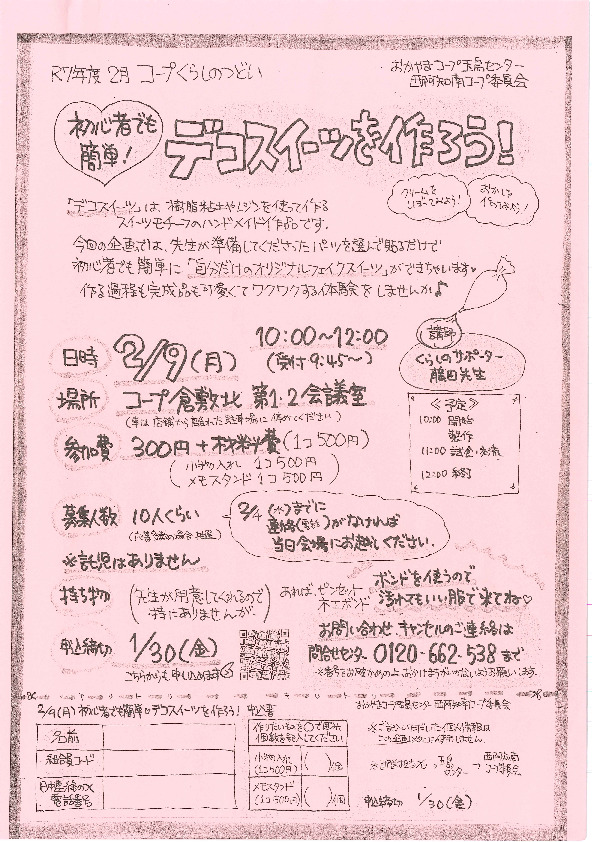 R7年度 2月 コープくらしのつどい
おかやまコープ玉島センター
西阿知南コープ委員会
初心者でも
簡単!
デコスイーツを作ろう!
クリームを
しぼってみよう!
「デコスイーツ」は、樹脂粘土やレジンを使って作る
スイーツモチーフのハンドメイド作品です。
今回の企画では、先生が準備してくださったパーツを選んで貼るだけで
初心者でも簡単に「自分だけのオリジナルフェイクスイーツ」ができちゃいます♥
作る過程も完成品も可愛くてワクワクする体験をしませんか♪
日時 2/9(月) 10:00~12:00
(受付 9:45~)
講師
くらしのサポーター
藤田先生
場所 コープ倉敷北 第1・2会議室
(車は店舗から離れた駐車場に停めてください)
参加費 300円+材料費(1コ500円)
(小物入れ 1コ500円
メモスタンド 1コ500円)
≪予定≫
10:00 開始
製作
11:00 試食・交流
12:00 終了
募集人数 10人くらい
2/4(水)までに
連絡(電話)がなければ
当日会場にお越しください。
※託児はありません
持ち物 (先生が用意してくれるので
特にありませんが、) あれば、ピンセット、
木工ボンド
ボンドを使うので
汚れてもいい服で来てね♡
申込締切 1/30(金)
こちらからも申し込めます
お問い合わせ、キャンセルのご連絡は
問合せセンター 0120-662-538 まで
※番号をお確かめの上、おかけまちがいのないようお願いします。
2/9(月) 初心者でも簡単♡デコスイーツを作ろう! 申込書
おかやまコープ玉島センター 西阿知南コープ委員会
名前
組合員コード
電話番号
作りたいものを○で囲み
個数を記入してください
小物入れ
(1コ500円) ( )個
メモスタンド
(1コ500円) ( )個
※ご記入いただいた個人情報は
この企画以外には使用しません。
申込締切 1/30(金)